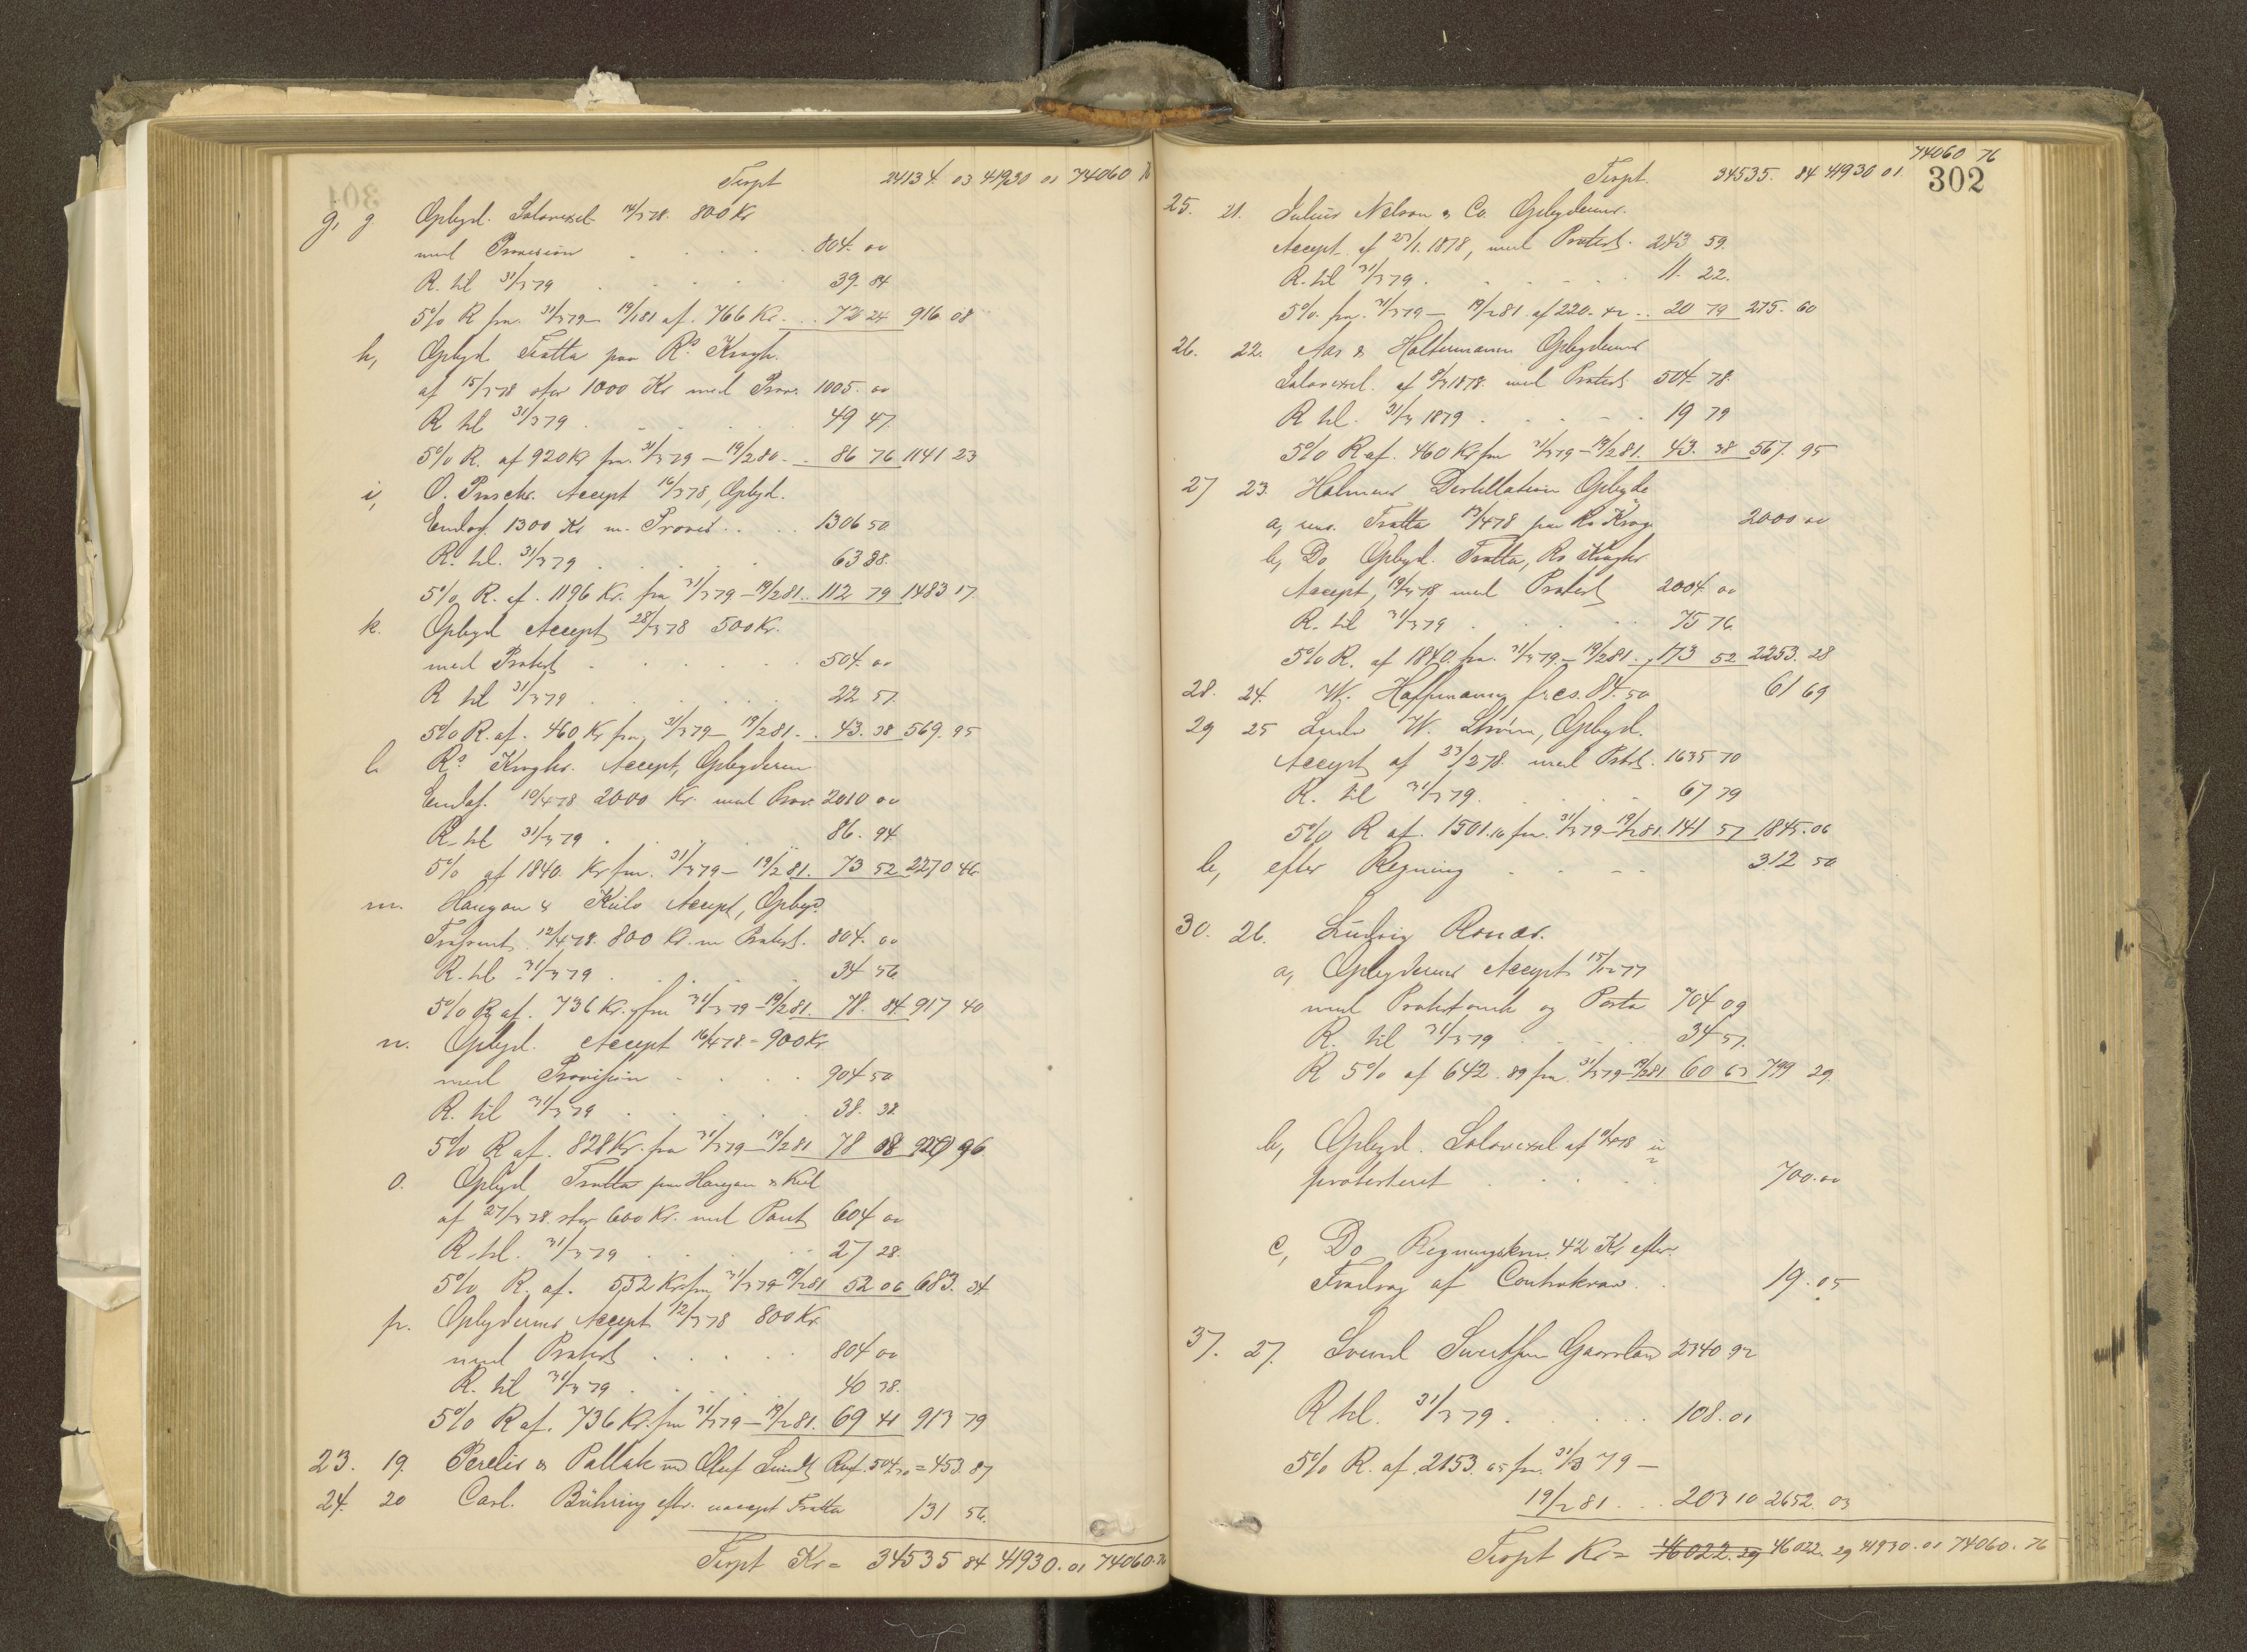 Trspt 24134. 03 41930 01 74060 76
g, g. Opbyd. Solavexel 14/3 78. 800 Kr
med Provision . . . . 804. 00
R. til 31/3 79 . . . . 39. 84
5% R fra 31/3 79 - 19/2 81 af 766 Kr. . . 72 24 916 08
h, Opbyd Tratta paa Rs. Krogh.
af 15/3 78 stor 1000 Kr med Prov. 1005. 00
R til 31/3 79 . . . . 49 47.
5% R. af 920 Kr fra 31/3 79 - 19/2 80. . 86 76 1141 23
i, O. Accept 16/3 78, Opbyd.
Endos. 1300 Kr m. Provis. . . 1306 50
R. til. 31/3 79 . . . . 63 88.
5% R. af. 1196 Kr. fra 31/3 79 - 19/2 81. . 112 79 1483 17.
k. Opbyd Accept 28/3 78 500 Kr.
med Protest . . . . 504. 00
R til 31/3 79 . . . . 22 57.
5% R. af. 460 Kr fra 31/3 79 - 19/2 81. . 43. 38 569. 95
l. Rs Kroghs. Accept, Opbyderen
Endos. 10/4 78 2000 Kr. med Prov. 2010 00
R. til 31/3 79 . . . . 86. 94.
5% af 1840. Kr fra. 31/3 79 - 19/2 81. 73 52 2270 46.
m. Haugan & Kiils Accept, Opbyd.
Trassent 12/4 78. 800 Kr. m Protest. 804. 00
R. til 31/3 79 . . . . 34 56
5% R af. 736 Kr. fra 31/3 79 - 19/2 81. 78. 84 917 40
n. Opbyd. Accept 16/4 78 - 900 Kr
med Provision . . . . 904 50
R. til 31/3 79 . . . . 38. 38.
5% R af. 828 Kr. fra 31/3 79 - 19/2 81 78 08 96
o. Opbyd Tratta paa Haugan & Kiil
af 27/3 78. stor 600 Kr. med 604 00
R. til. 31/3 79 . . . . 27 28.
5% R. af. 552 Kr. fra 31/3 79 - 19/2 81 52 06 683. 34
p. Opbyderens Accept 12/3 78 800 Kr.
med Protest . . . . 804 00
R. til 31/3 79 . . . . 40 38.
5% R af. 736 Kr. fra 31/3 79 - 19/2 81. 69 41 913 79
23. 19. & Pollak Oluf Lundt = 453. 87
24. 20 Carl. Bühring efter. uaccept Tratta 131 56.
Trspt Kr = 34535 84 41930. 01 74060. 76
74060 76
Trspt. 34535. 84 41930 01. 302
25. 21. Julius Nelson & Co. Opbyderens.
Accept. af 23/1. 1878, med Protest. 243 59.
R. til 31/3 79 . . . . 11. 22.
5% fra. 31/3 79 - 19/2 81. af 220. 42 . . 20 79 275. 60
26. 22. Aas & Haltermann Opbyderens
Solavexel. af 1878. med Protest 504. 78.
R til. 31/3 1879 . . . . 19 79
5% R af. 460 Kr fra 31/3 79 - 19/2 81. 43. 38 567. 95
27 23. Holmens Destillation Opbyds
a, Tratta 19/4 78 paa Rs Krog 2000 00
b, Do Opbyd. Tratta, Rs Kroghs
Accept, 19/4 78 med Protest 2004. 00
R. til 31/3 79 . . . . 75 76.
5% R. af 1840. fra. 31/3 79. - 19/2 81. 173 52 2253. 28
28. 24. W. Hoffmann frcs. 84. 50 61 69
29 25 Ludv W. Strøm, Opbyd.
Accept af 23/2 78. med Prtst. 1635 70
R. til 31/3 79. . . . 67 79
5% R af. 1501. 16 fra. 31/3 79 - 19/2 81. 141 57 1845. 06
b, efter Regning . . . . 312 50
30. 26. Ludvig
a, Opbyderens Accept 15/12 77
med og Porto 704 09
R. til 31/3 79 . . . 34 57.
R 5% af 642. 89 fra. 31/3 79 - 19/2 81 60 63 799 29.
b, Opbyd. Solavexel af 78 u
protesteret . . . . 700. 00
c, Do Regningskrav. 42 Kr efter
Fradrag af Contrakrav. . 19. 05
37. 27. Svend Sivertsen Gaarland 2340. 92
R til. 31/3 79. . . . . 108. 01
5% R. af. 2153. 65 fra. 31/3 79 -
19/2 81. . . 203 10 2652. 03
Trspt Kr = 46022. 29 46022. 29 41930. 01 74060. 76